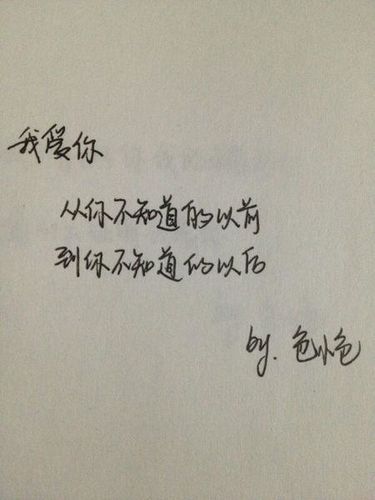 我爱你
从你不知道的以前
到你不知道的以后
by. 包小包